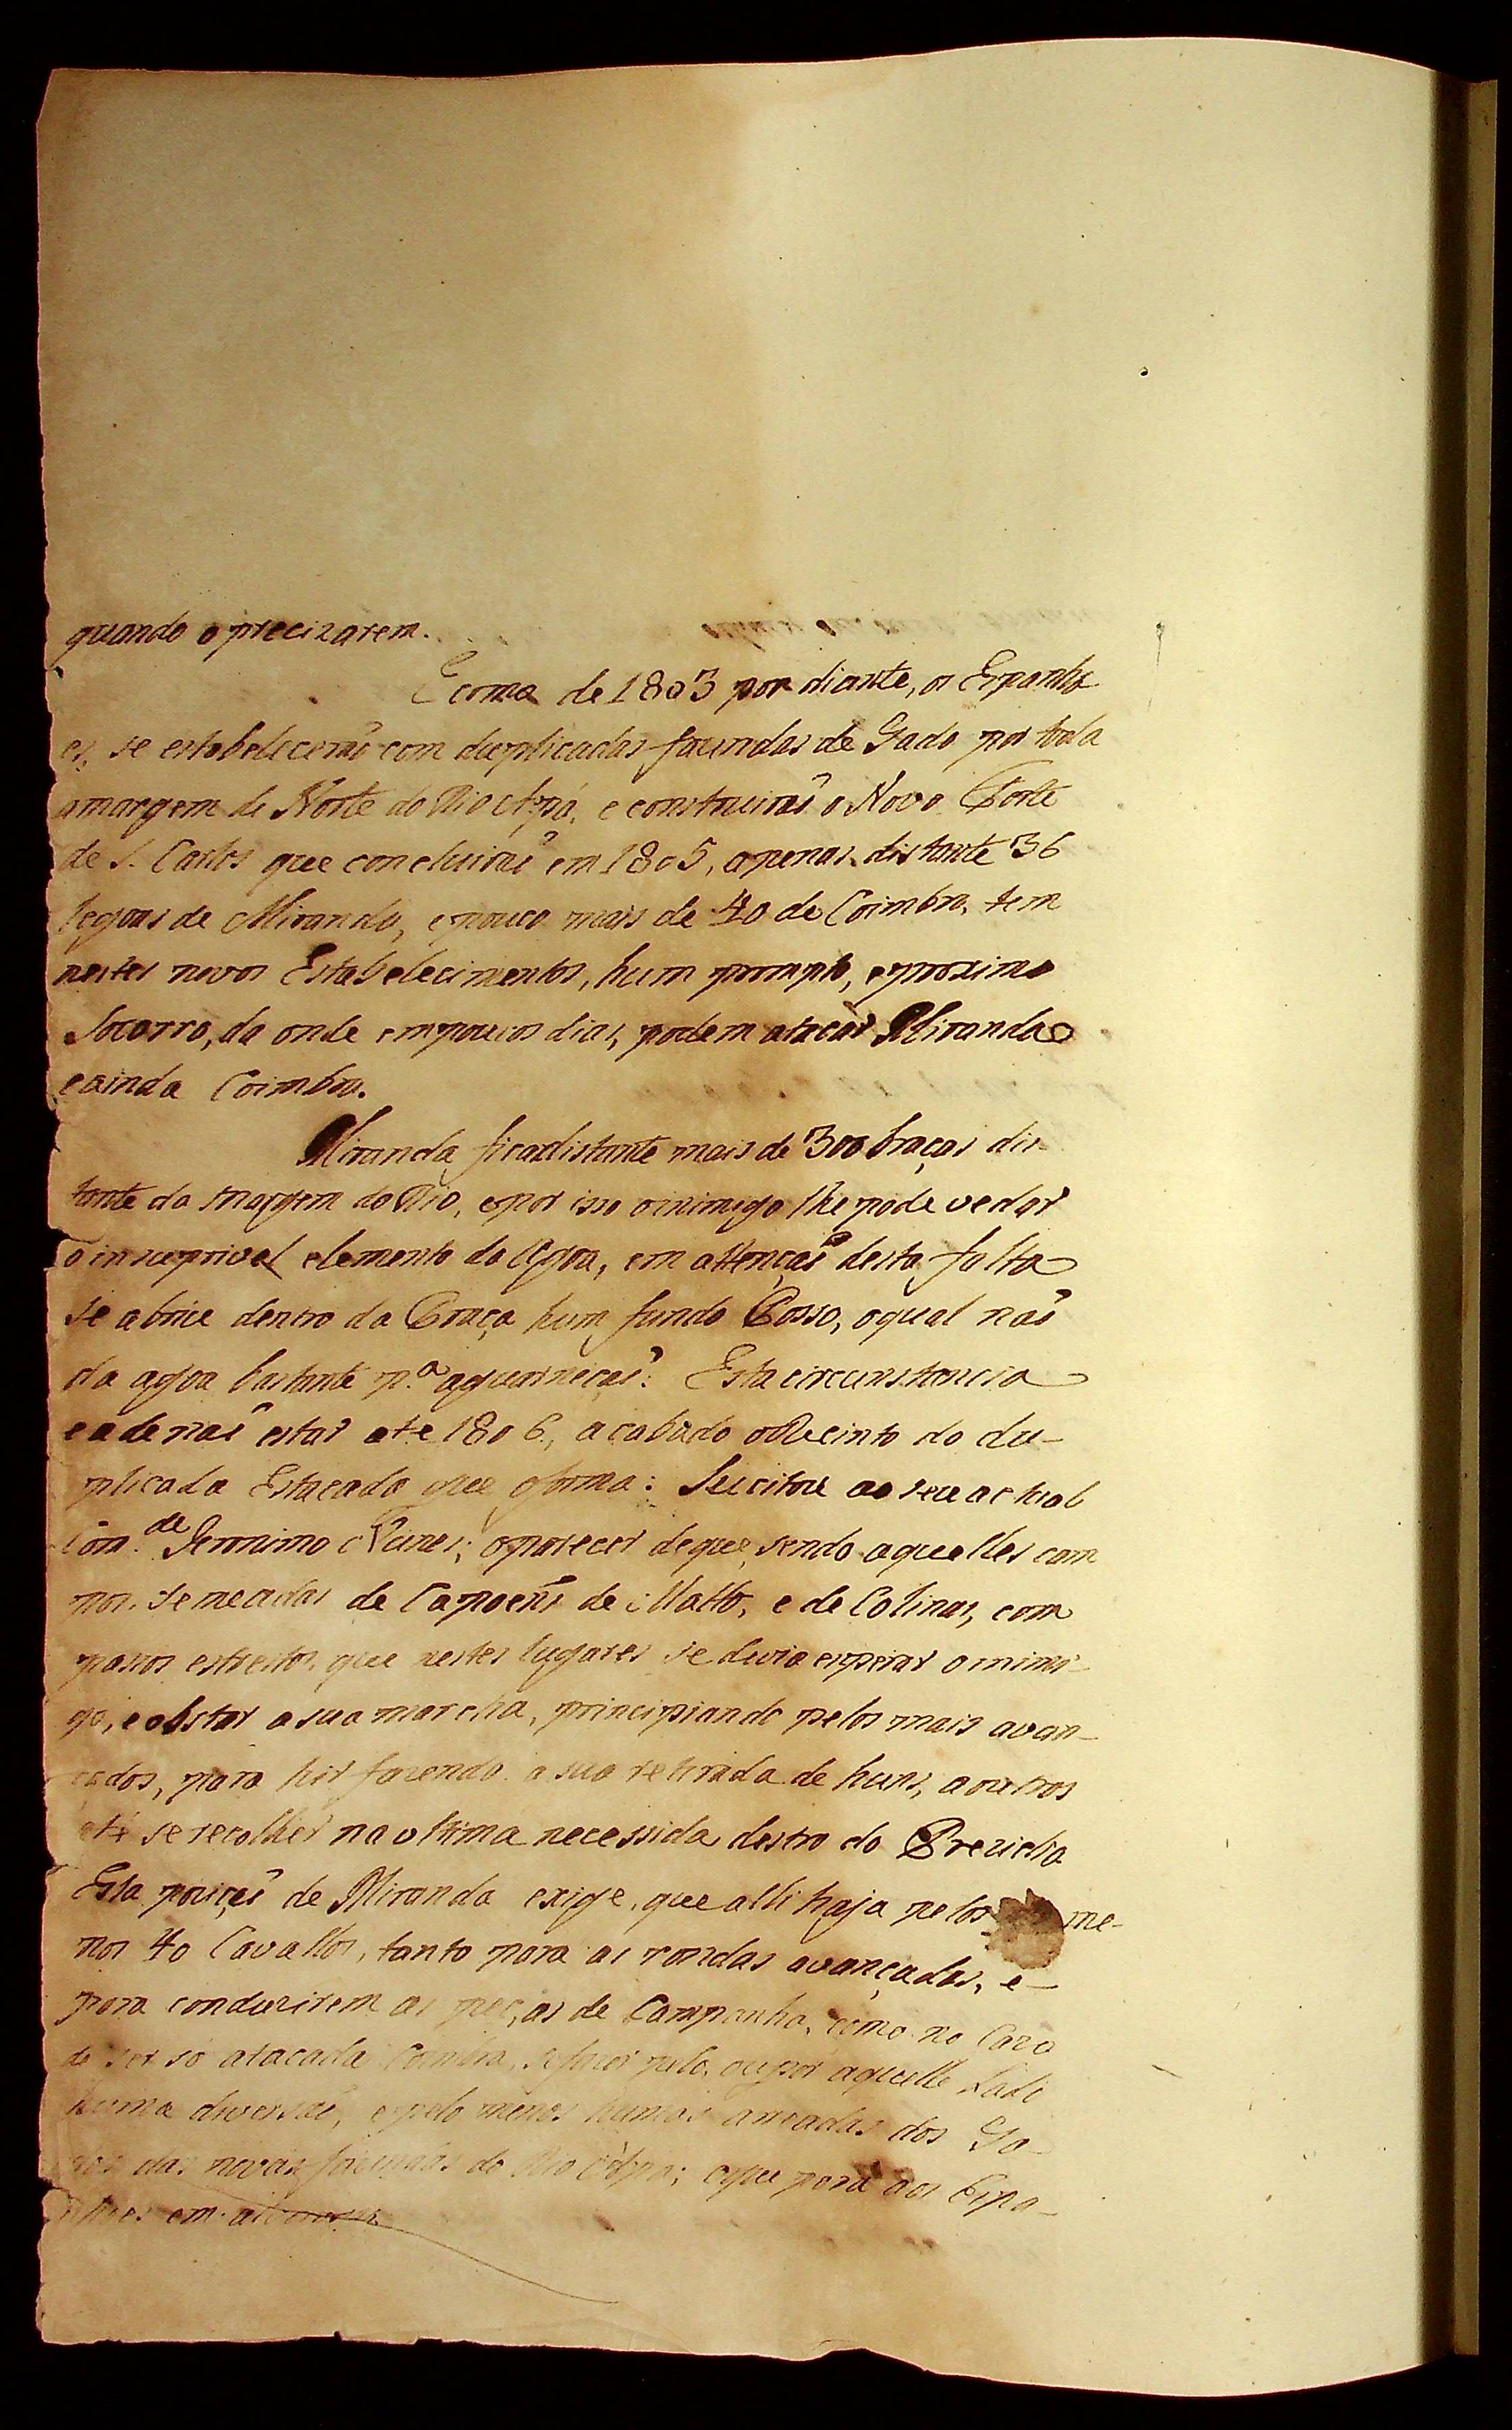 quando o precizarem.
E como de 1803 por diante, os Espanho
es, se estabeleceraõ com duplicadas fazendas de Gado por toda
a margem de Norte do Rio Apá, e construiraõ o Novo Forte
de S. Carlos que concluiraõ em 1805, apenas distante 36
legoas de Miranda, e pouco mais de 40 de Coimbra, tem
nestes novos Estabelecimentos, hum prompto, e proximo
Socorro, da onde em poucos dias, podem atacar Miranda
e ainda Coimbra.
Miranda fica distante mais de 300 braças dis-
tante da margem do Rio, e por isso o inimigo lhe pode vedar
o insuprivel elemento da Agoa, em attençaõ desta falta
se abrice dentro da Praça hum fundo Posso, o qual naõ
da agoa bastante p.ª a guarniçaõ: Esta circunstancia
e a de naõ estar ate 1806, acabado o Recinto do du-
plicada Estacada que o forma: Sucitou ao seu actual
Com.de Jeronimo Nunes; o parecer de que, sendo aquelles cam
pos, semeadas de Capoens de Matto, e de Colinas, com
passos estreitos, que nestes lugares se devia esperar o inimi-
go, e obstar a sua marcha, principiando pelos mais avan-
cados, para hir fazendo a sua retirada de huns, a outros
até se recolher na ultima necessida dentro do Prezidio
Esta poziçaõ de Miranda exige, que alli haja pelos me-
nos 40 Cavallos, tanto para as rondas avançadas, e-
para conduzirem as peças de Campanha, como no Cazo
de ser só atacada Coimbra, se fazer pelo, ou por aquelle Lado
huma diversaõ, e pelo menos humas arreadas dos Ga-
dos das novas fazendas do Rio Apa; o que porá aos Espa-
nhoes em